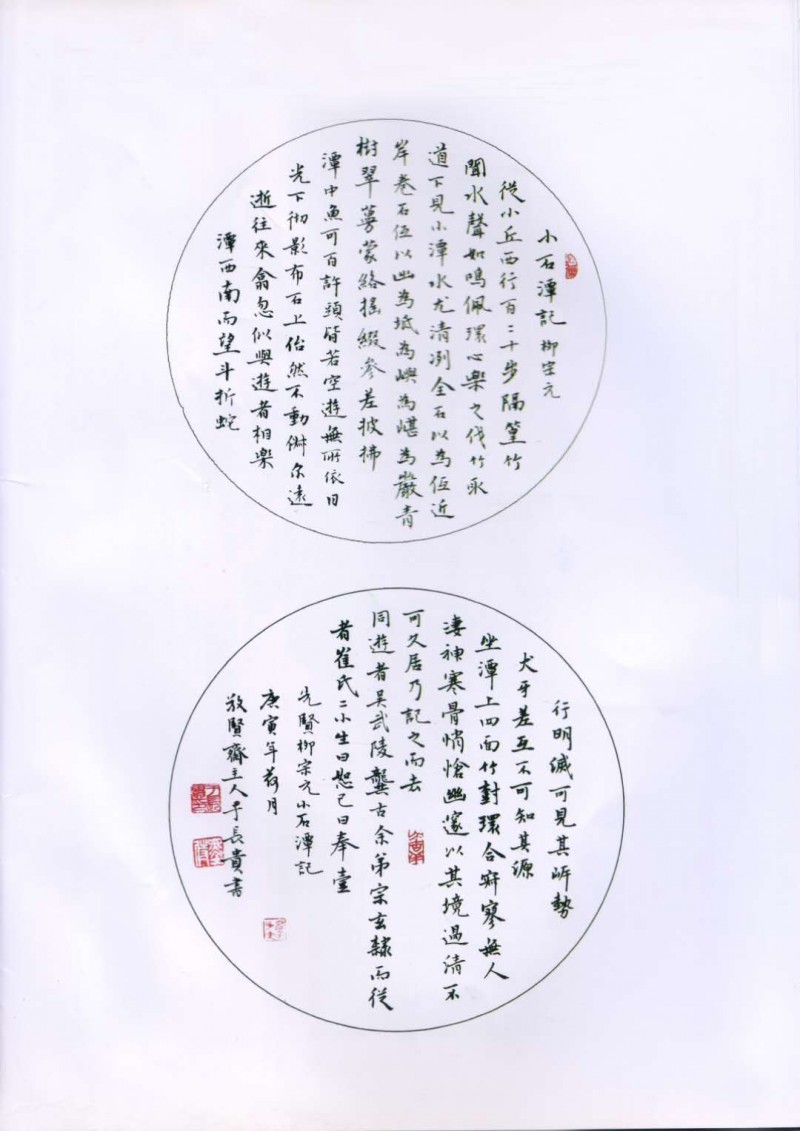 小石潭記 柳宗元
從小丘西行百二十步隔篁竹
聞水聲如鳴佩環心樂之伐竹取
道下見小潭水尤清冽全石以為底近
岸卷石底以出為坻為嶼為嵁為巖青
樹翠蔓蒙絡搖綴參差披拂
潭中魚可百許頭皆若空遊無所依日
光下彻影布石上佁然不動俶尔遠
逝往來翕忽似與遊者相樂
潭西南而望斗折蛇
行明滅可見其岸勢
犬牙差互不可知其源
坐潭上四面竹樹環合寂寥無人
淒神寒骨悄愴幽邃以其境過清不
可久居乃記之而去
同遊者吳武陵龔古余弟宗玄隸而從
者崔氏二小生曰恕己曰奉壹
先賢柳宗元小石潭記
庚寅年荷月
敬賢齋主人于長貴書